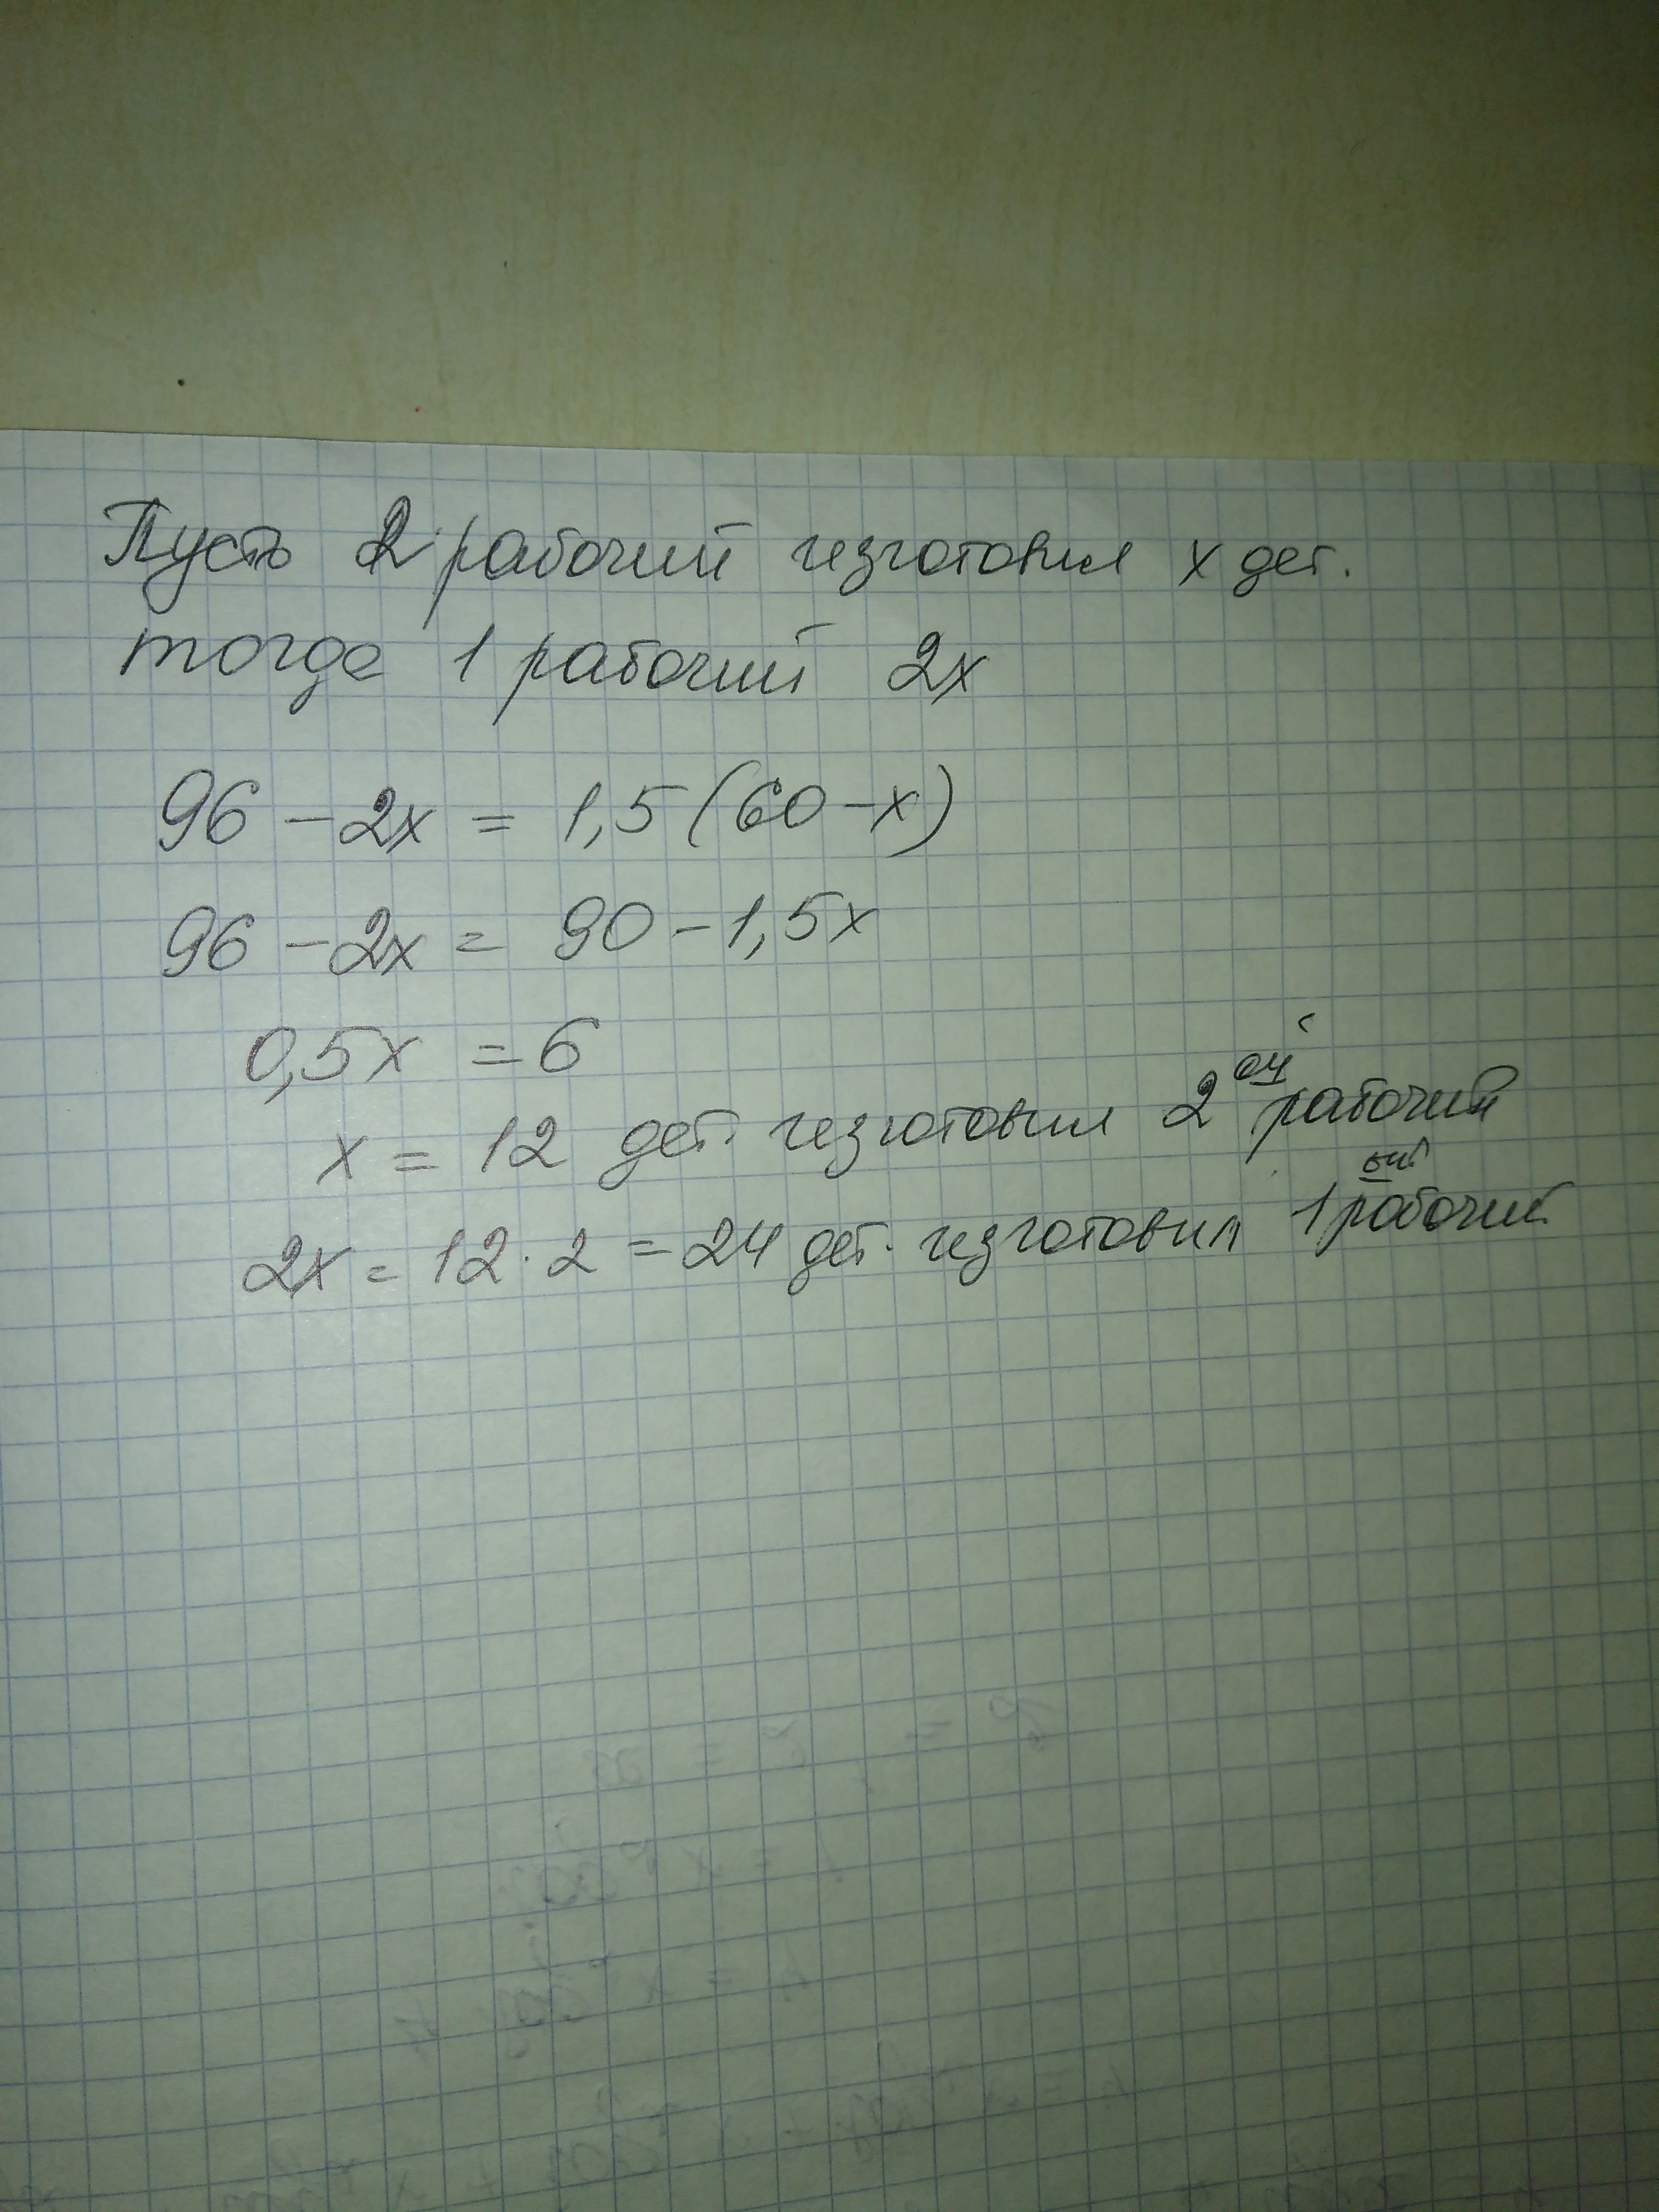 Пусть 2 рабочий изготовил x дет.
тогда 1 рабочий 2x
96 - 2x = 1,5 (60 - x)
96 - 2x = 90 - 1,5x
0,5x = 6
x = 12 дет. изготовил 2 ой рабочий
2x = 12 · 2 = 24 дет. изготовил 1 ый рабочий